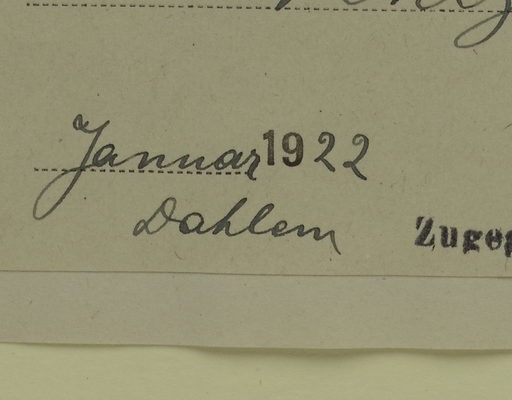 Januar 1922
Dahlem